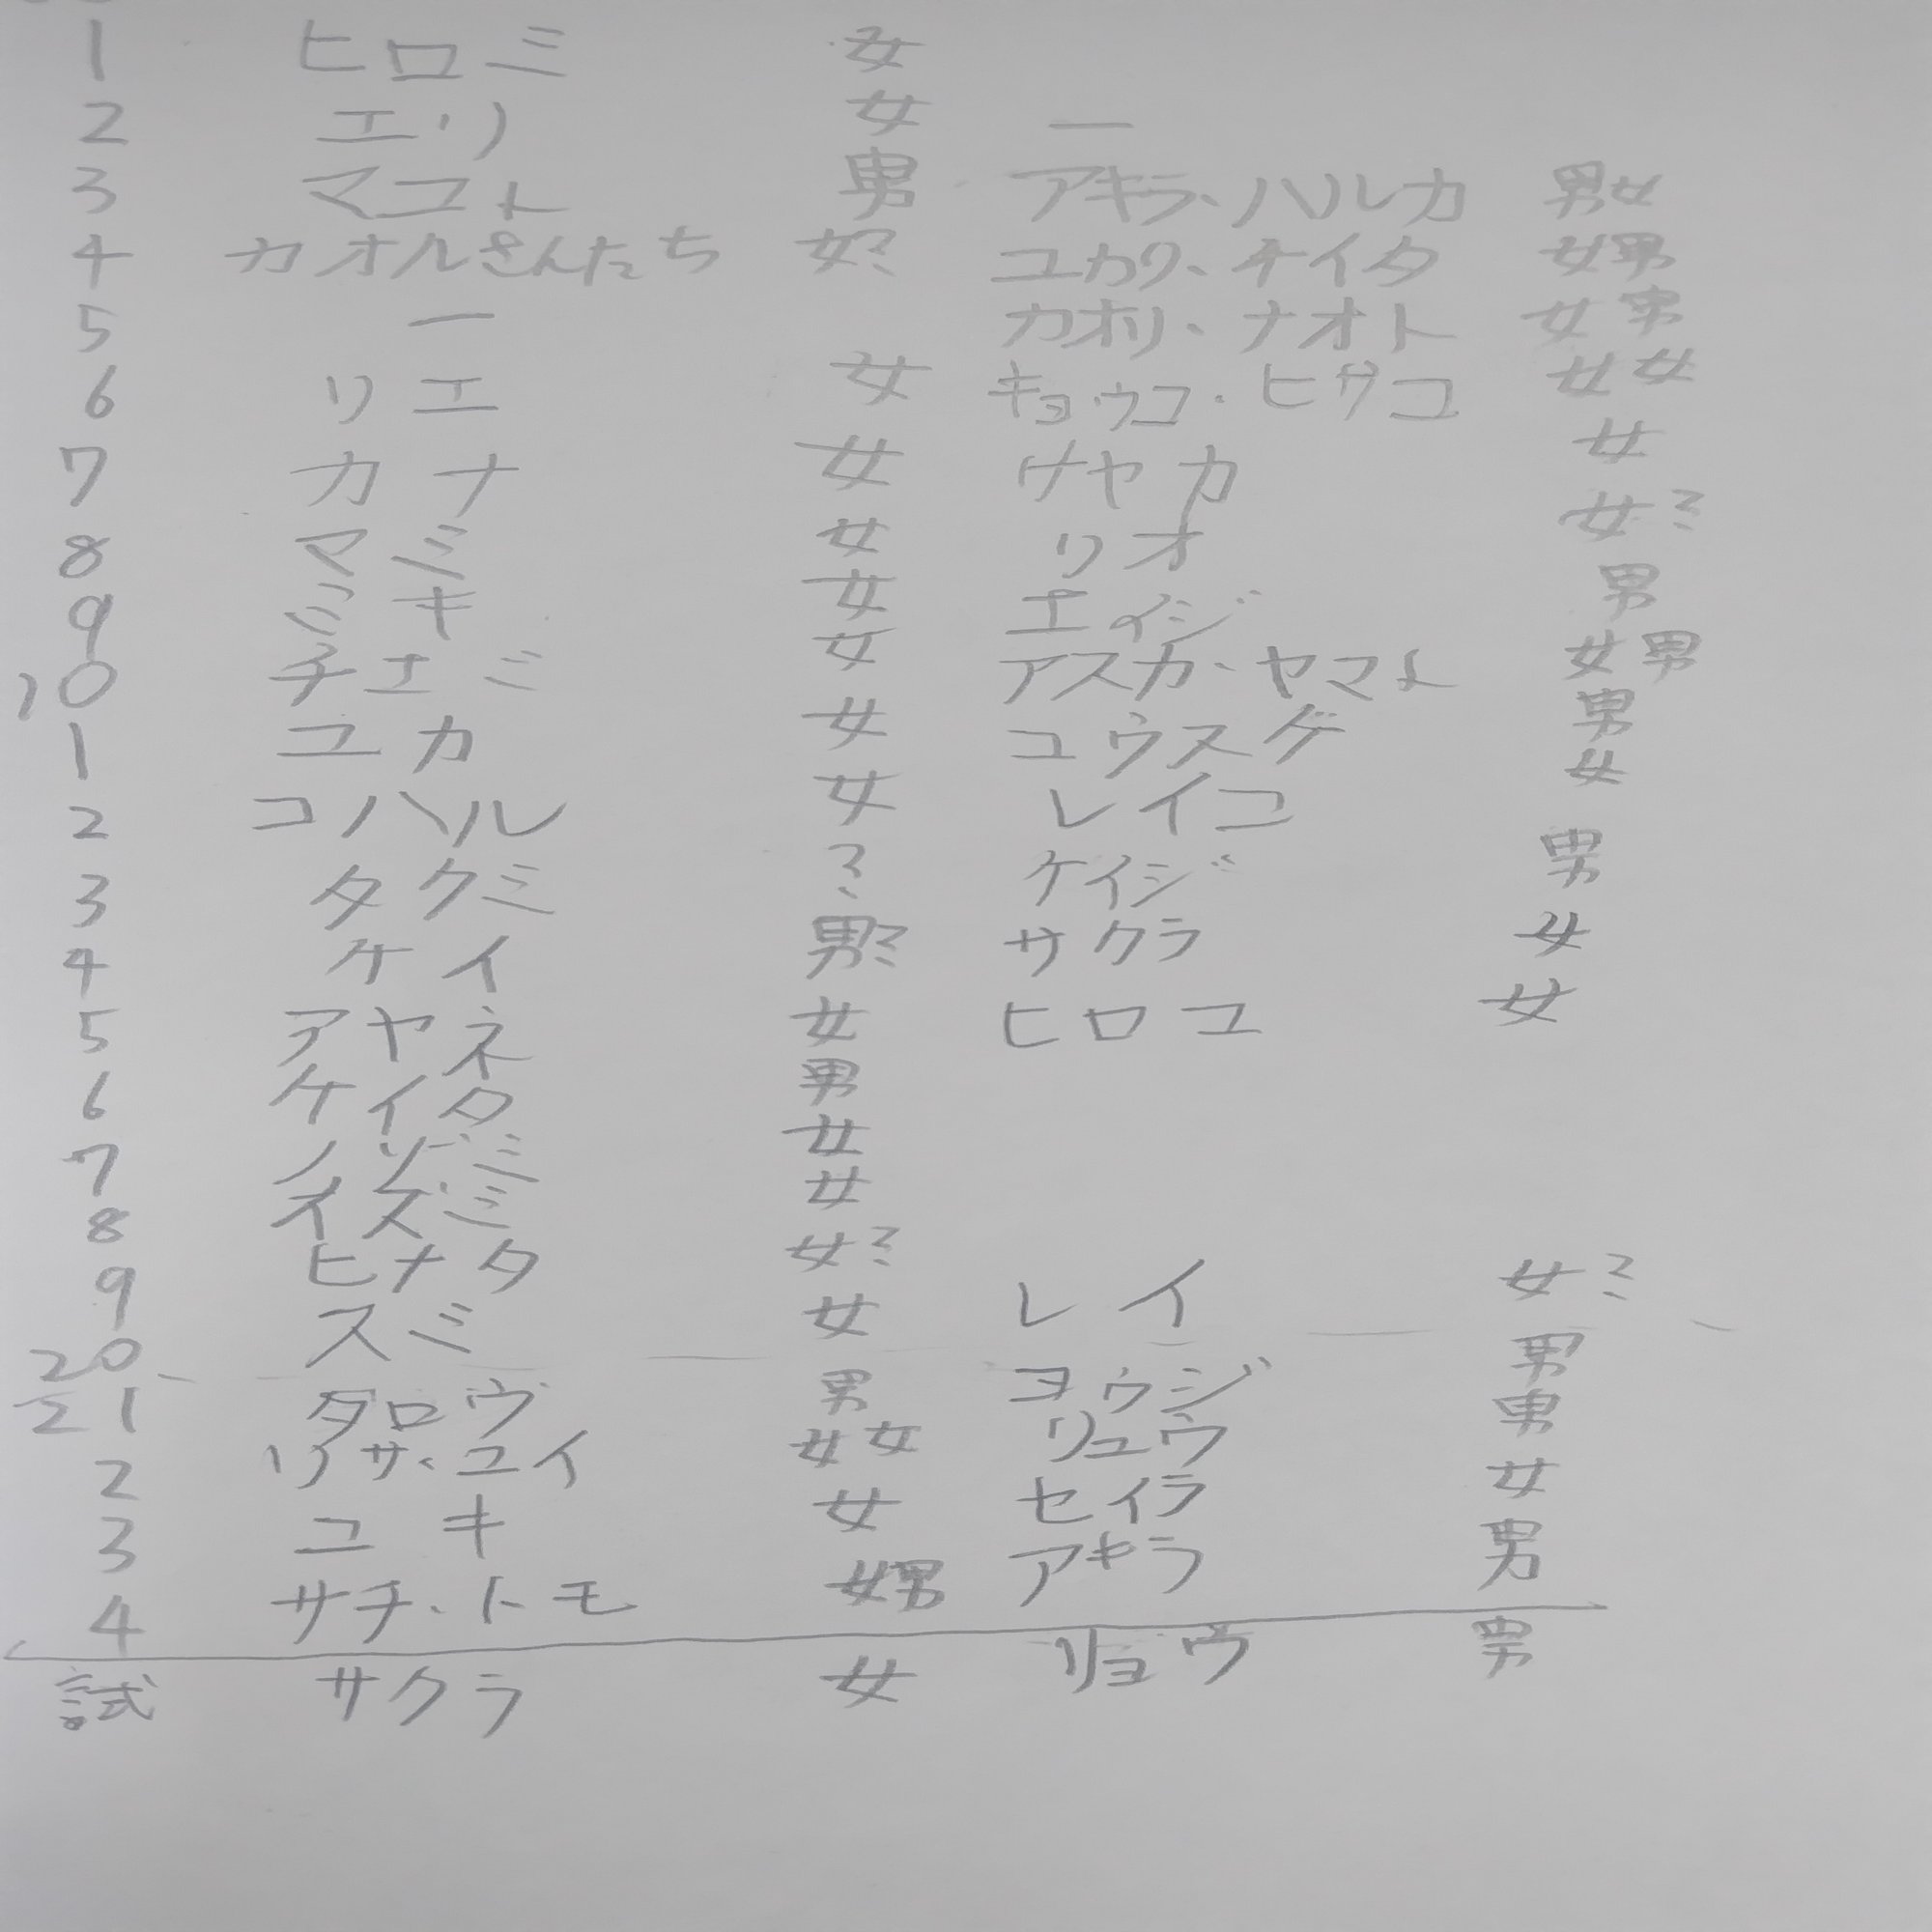 1 ヒロミ 女
2 エリ 女 ー
3 マコト 男 アキラ、ハルカ 男女
4 カオルさんたち 女? ユカリ、ケイタ 女男
5 ー カオリ、ナオト 女男
6 リエ 女 キョウコ、ヒサコ 女女
7 カナ 女 サヤカ 女
8 マミ 女 リオ 女?
9 ミキ 女 エイジ 男
10 チエミ 女 アスカ、ヤマト 女男
1 ユカ 女 ユウスケ 男
2 コハル 女 レイコ 女
3 タクミ ? ケイジ 男
4 ケイ 男? サクラ 女
5 アヤネ 女 ヒロコ 女
6 ケイタ 男
7 ノゾミ 女
8 イズミ 女
9 ヒナタ 女? レイ 女?
20 スミ 女 ヨウジ 男
21 タロウ 男 リュウ 男
2 リサ、ユイ 女女 セイラ 女
3 ユキ 女 アキラ 男
4 サチ、トモ 女男
試 サクラ 女 リョウ 男